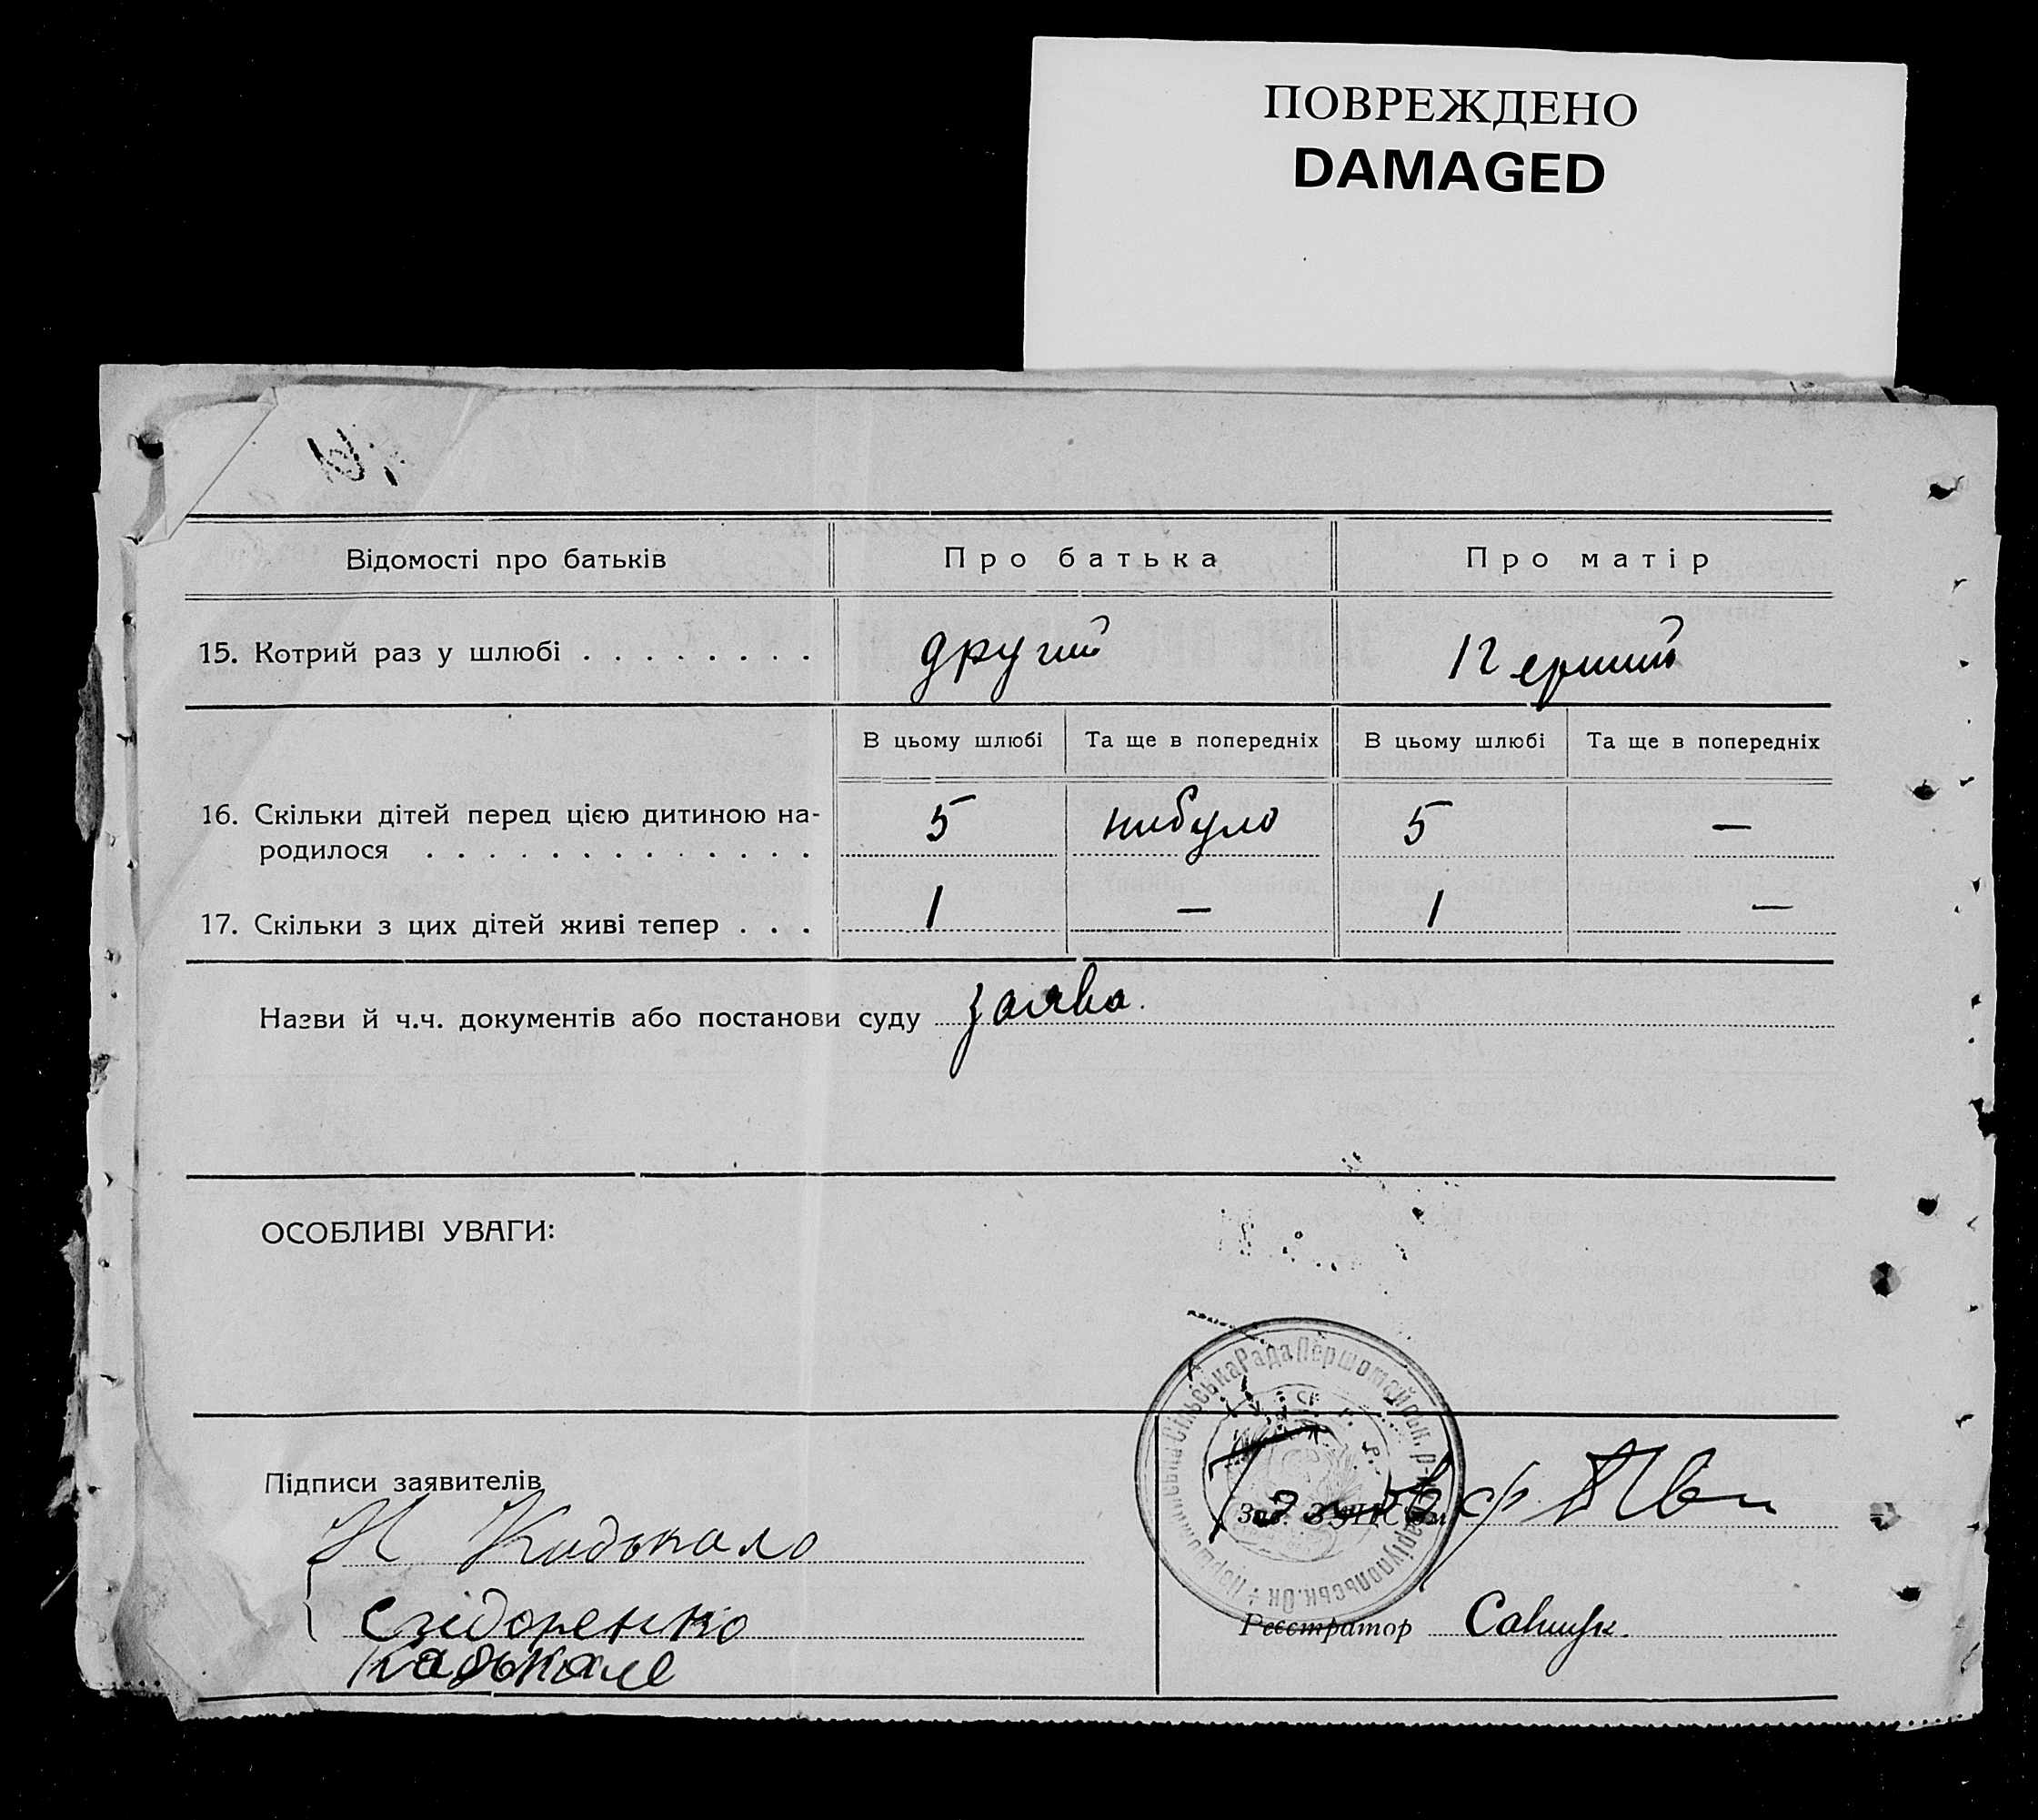 ПОВРЕЖДЕНО
DAMAGED
Відомості про батьків Про батька Про матір
15. Котрий раз у шлюбі . . . . . . . . другий Перший
В цьому шлюбі Та ще в попередніх В цьому шлюбі Та ще в попередніх
16. Скільки дітей перед цією дитиною на-
родилося . . . . . . . . . . . . . 5 небуло 5 —
17. Скільки з цих дітей живі тепер . . . 1 — 1 —
Назви й ч.ч. документів або постанови суду заява.
ОСОБЛИВІ УВАГИ:
Сільська Рада Першомайськ. р-
Маріупольськ. Ок.
Підписи заявителів
Зав. ЗАГС'ом
Н Кадькало
Сидоренко
Кадькале
Реєстратор Савчук.